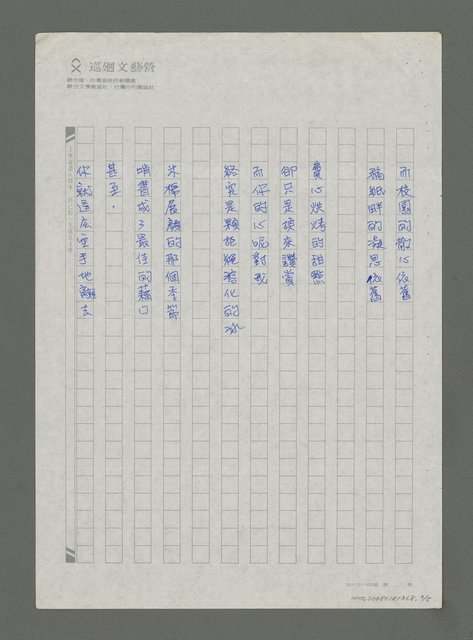 巡迴文藝營
聯合報．台灣省政府新聞處
聯合文學雜誌社．台灣月刊雜誌社
而校園的散心依舊
稿紙畔的凝思依舊
費心烘烤的甜點
卻只是換來讚賞
而你的心呢對我
終究是顆拒絕溶化的冰
木棉展顏的那個季節
啃書成了最佳的藉口
甚至．
你就這麼空手地離去